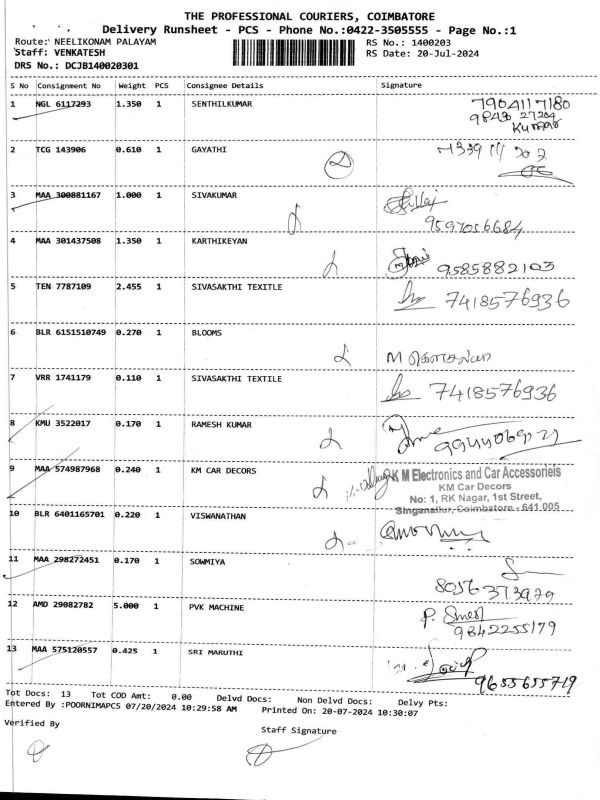 THE PROFESSIONAL COURIERS, COIMBATORE
Delivery Runsheet - PCS - Phone No.:0422-3505555 - Page No.:1
Route: NEELIKONAM PALAYAM RS No.: 1400203
Staff: VENKATESH RS Date: 20-Jul-2024
DRS No.: DCJB140020301
S No Consignment No Weight PCS Consignee Details Signature
1 NGL 6117293 1.350 1 SENTHILKUMAR 7904117180
Kumar
2 TCG 143906 0.610 1 GAYATHI
3 MAA 300881167 1.000 1 SIVAKUMAR
9597056684
4 MAA 301437508 1.350 1 KARTHIKEYAN
9585882103
5 TEN 7787109 2.455 1 SIVASAKTHI TEXITLE 7418576936
6 BLR 6151510749 0.270 1 BLOOMS
M கௌசல்யா
7 VRR 1741179 0.110 1 SIVASAKTHI TEXTILE 7418576936
8 KMU 3522017 0.170 1 RAMESH KUMAR
9 MAA 574987968 0.240 1 KM CAR DECORS
K M Electronics and Car Accessorieis
KM Car Decors
No: 1, RK Nagar, 1st Street,
Singanallur, Coimbatore - 641 005
10 BLR 6401165701 0.220 1 VISWANATHAN
11 MAA 298272451 0.170 1 SOWMIYA
8056373979
12 AMD 29082782 5.000 1 PVK MACHINE
9842255179
13 MAA 575120557 0.425 1 SRI MARUTHI
9655655719
Tot Docs: 13 Tot COD Amt: 0.00 Delvd Docs: Non Delvd Docs: Delvy Pts:
Entered By :POORNIMAPCS 07/20/2024 10:29:58 AM Printed On: 20-07-2024 10:30:07
Verified By
Staff Signature